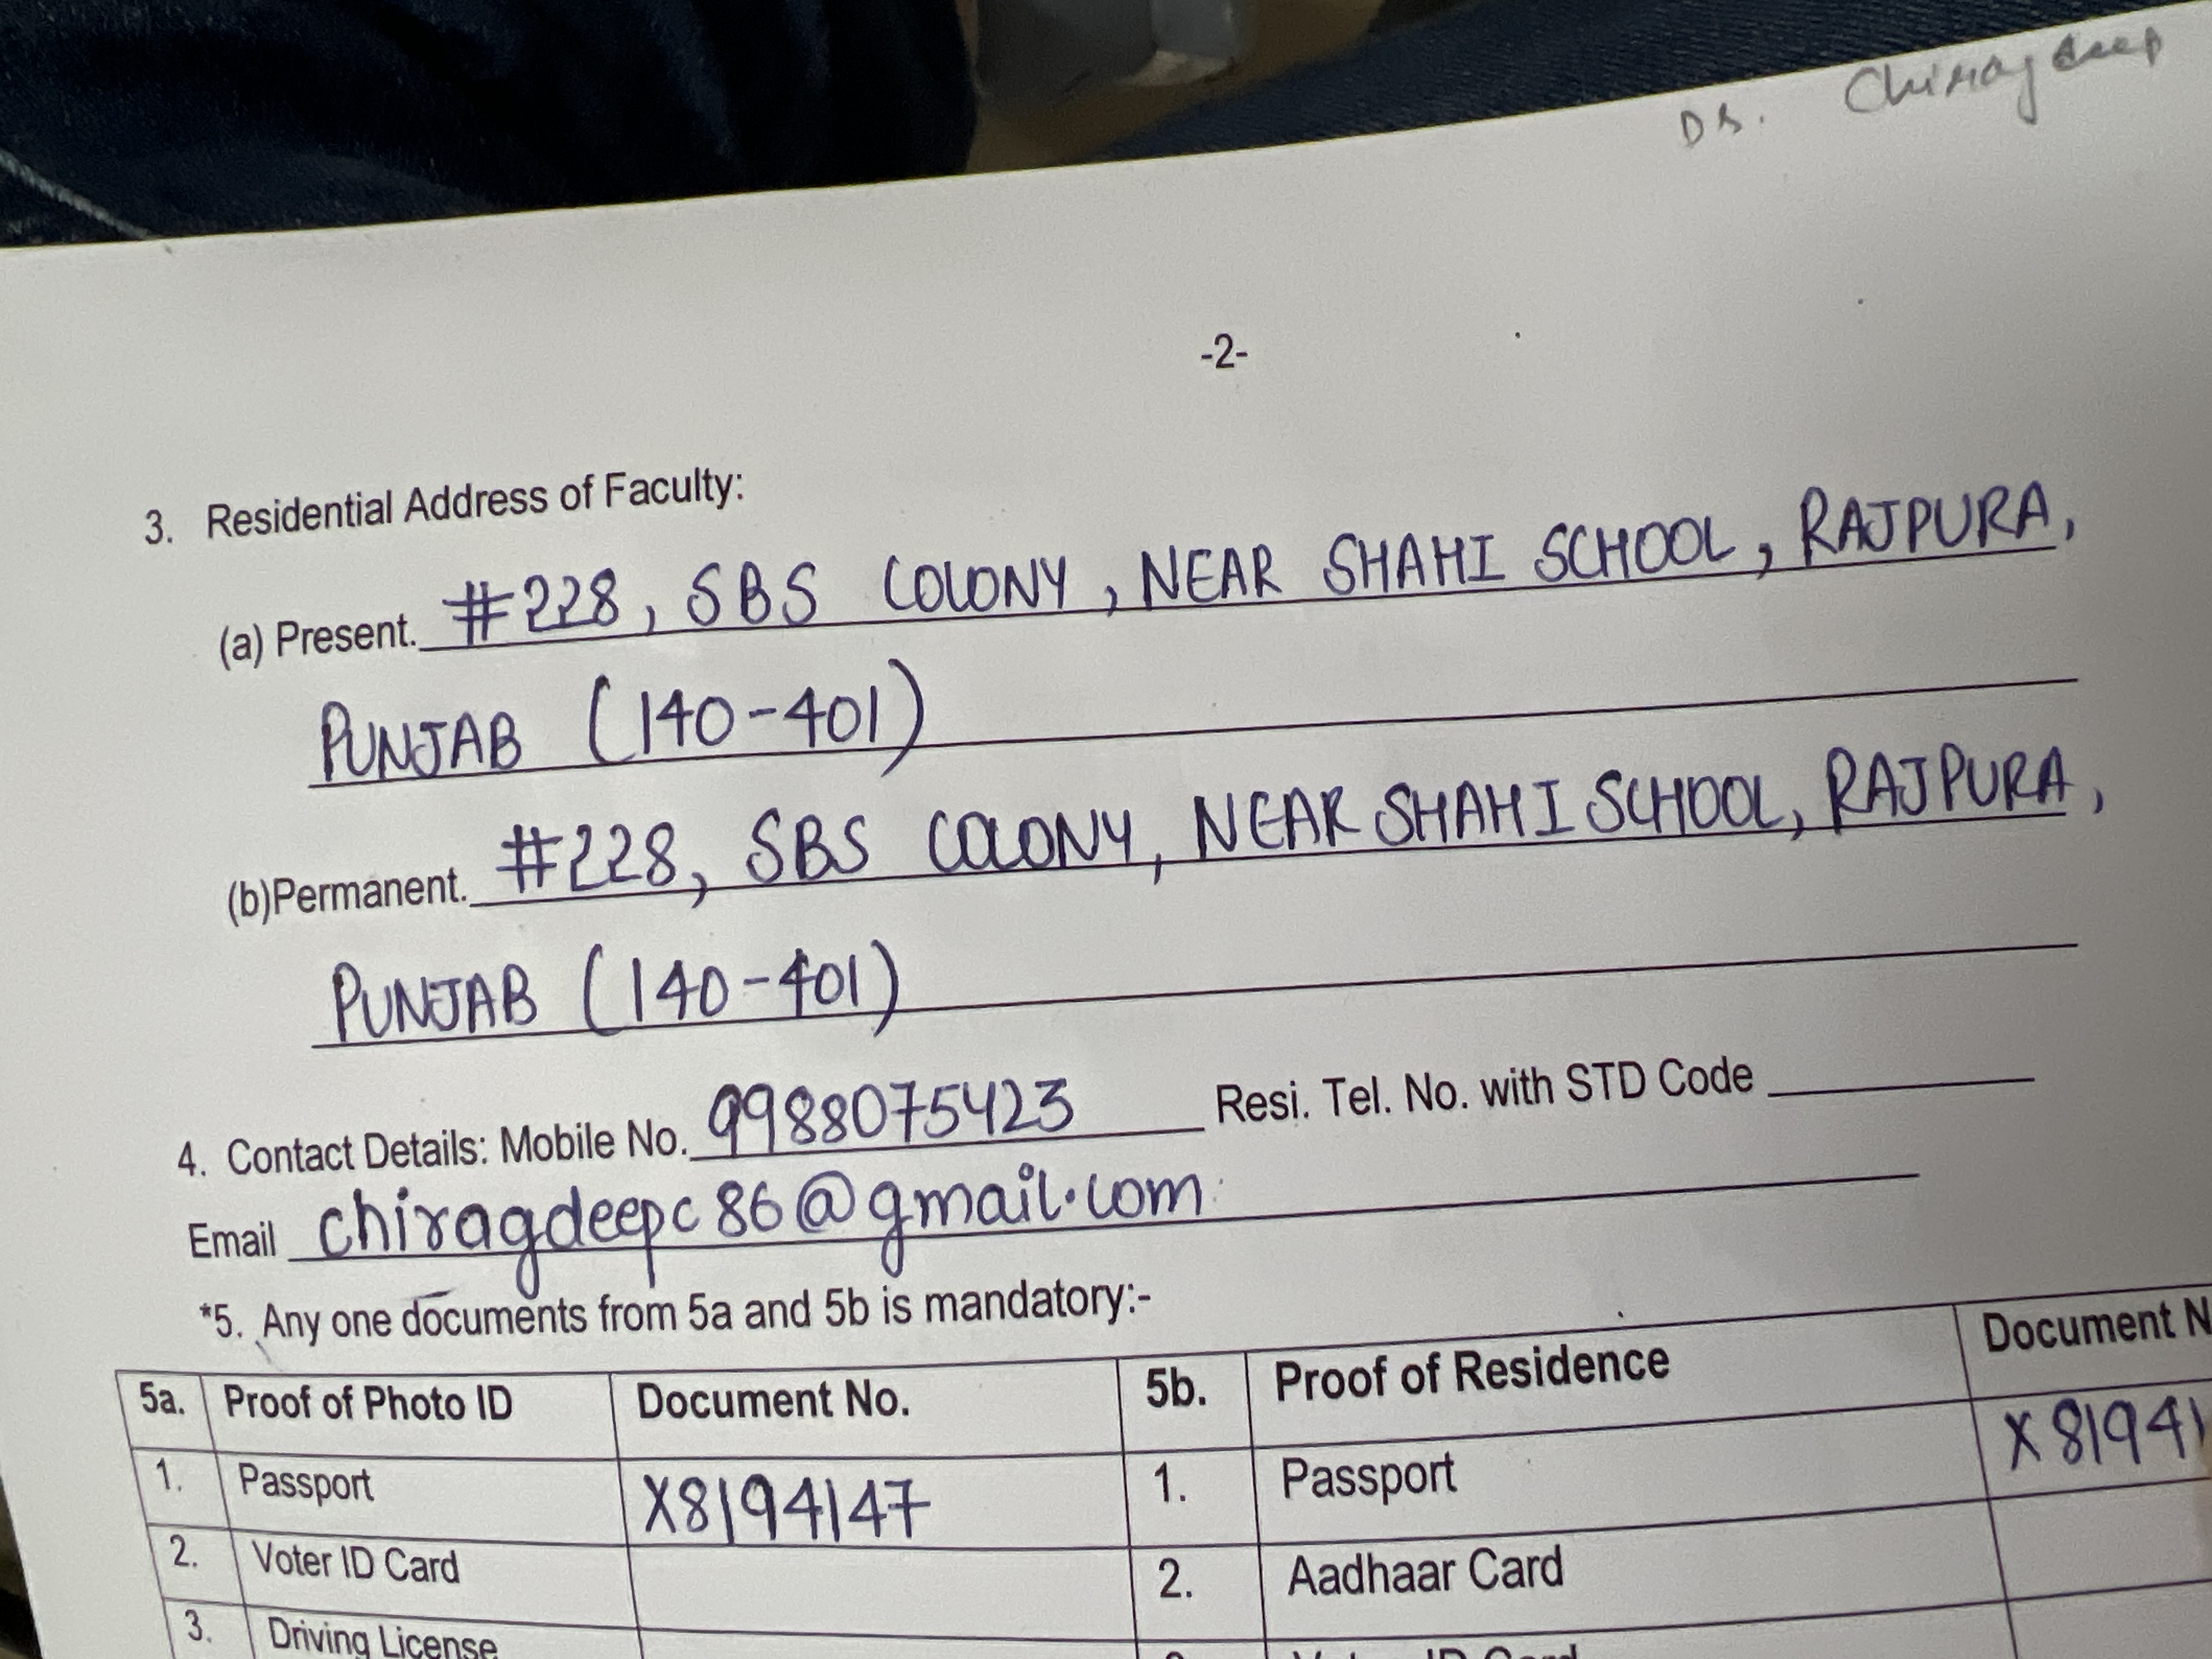 Dr. Chiragdeep
-2-
3. Residential Address of Faculty:
(a) Present. #228, SBS COLONY, NEAR SHAHI SCHOOL, RAJPURA,
PUNJAB (140-401)
(b)Permanent. #228, SBS COLONY, NEAR SHAHI SCHOOL, RAJPURA,
PUNJAB (140-401)
4. Contact Details: Mobile No. 9988075423 Resi. Tel. No. with STD Code
Email chiragdeepc86@gmail.com
*5. Any one documents from 5a and 5b is mandatory:-
5a. Proof of Photo ID Document No. 5b. Proof of Residence Document N
1. Passport X8194147 1. Passport X81941
2. Voter ID Card 2. Aadhaar Card
3. Driving License